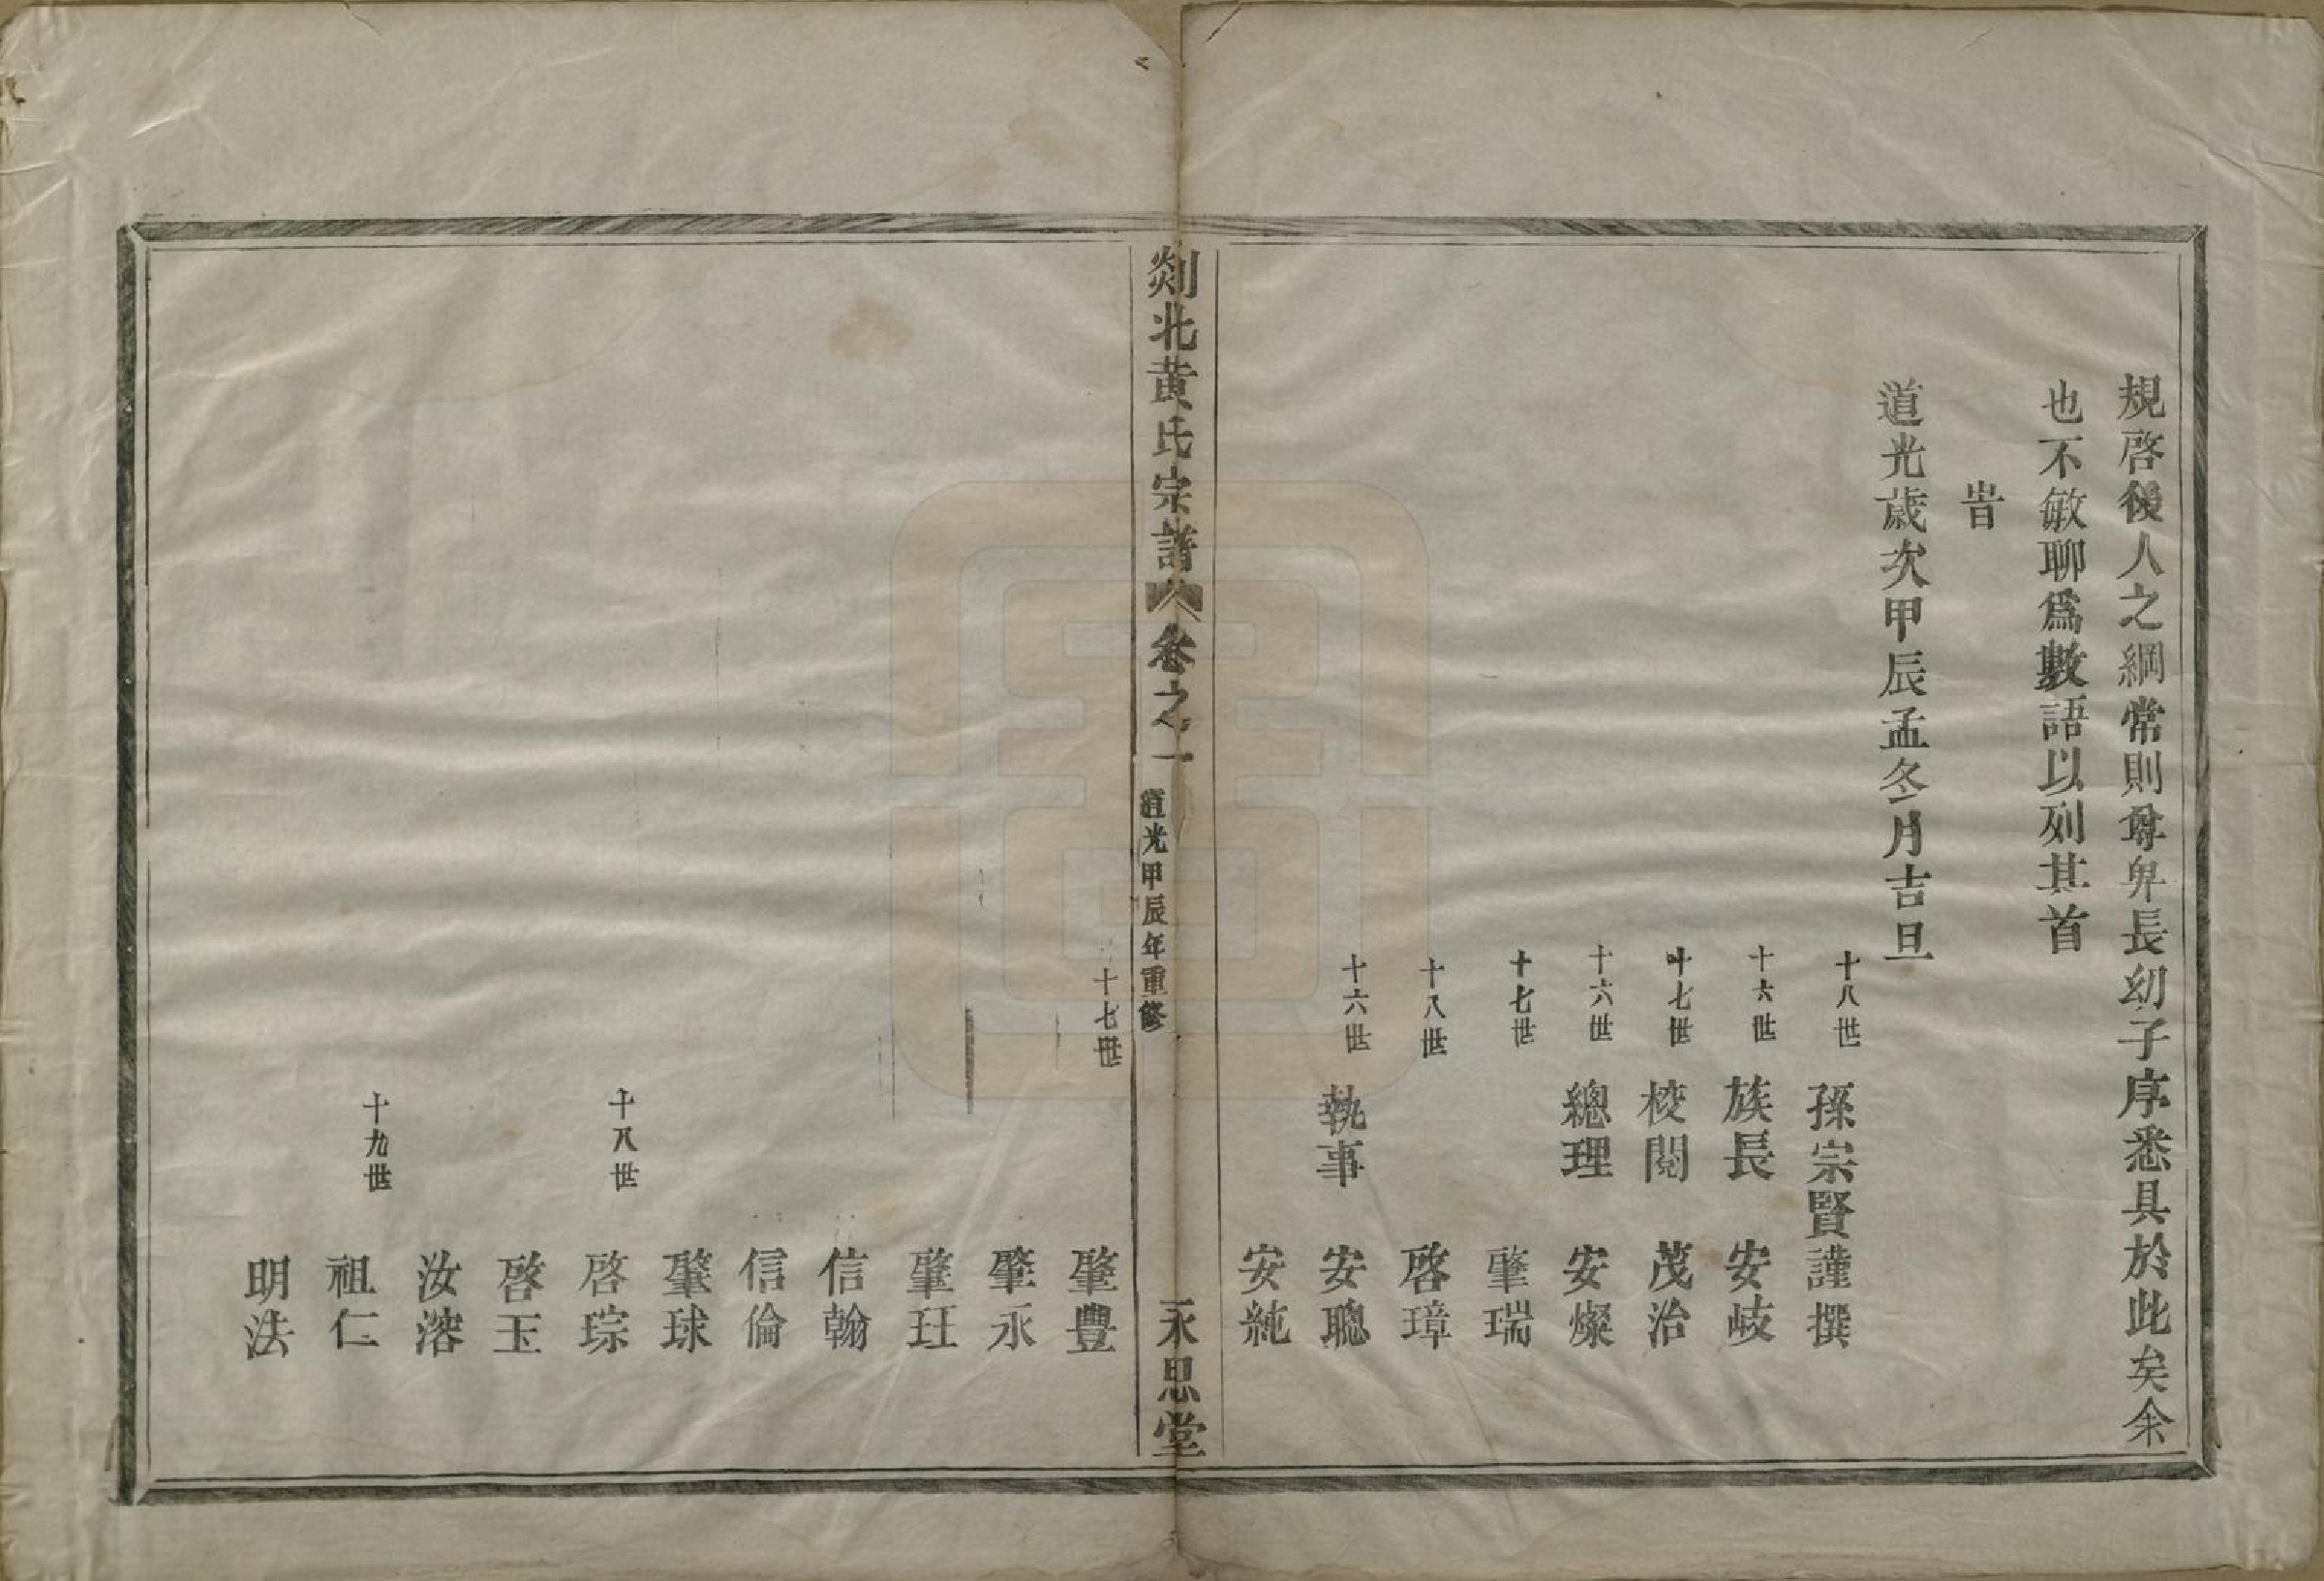 規啓後人之綱常則尊卑長幼子序悉具於此矣余
也不敏聊爲數語以列其首
旹
道光歲次甲辰孟冬月吉旦
十八世 孫宗賢謹撰
十六世 族長 安岐
十七世 校閱 茂治
十六世 總理 安燦
十七世 肇瑞
十八世 啓璋
十六世 執事 安聰
安純
剡北黃氏宗譜 卷之一 道光甲辰年重修 永思堂
十七世 肇豐
肇永
肇玨
信翰
信倫
肇球
十八世 啓琮
啓玉
汝溶
十九世 祖仁
明法